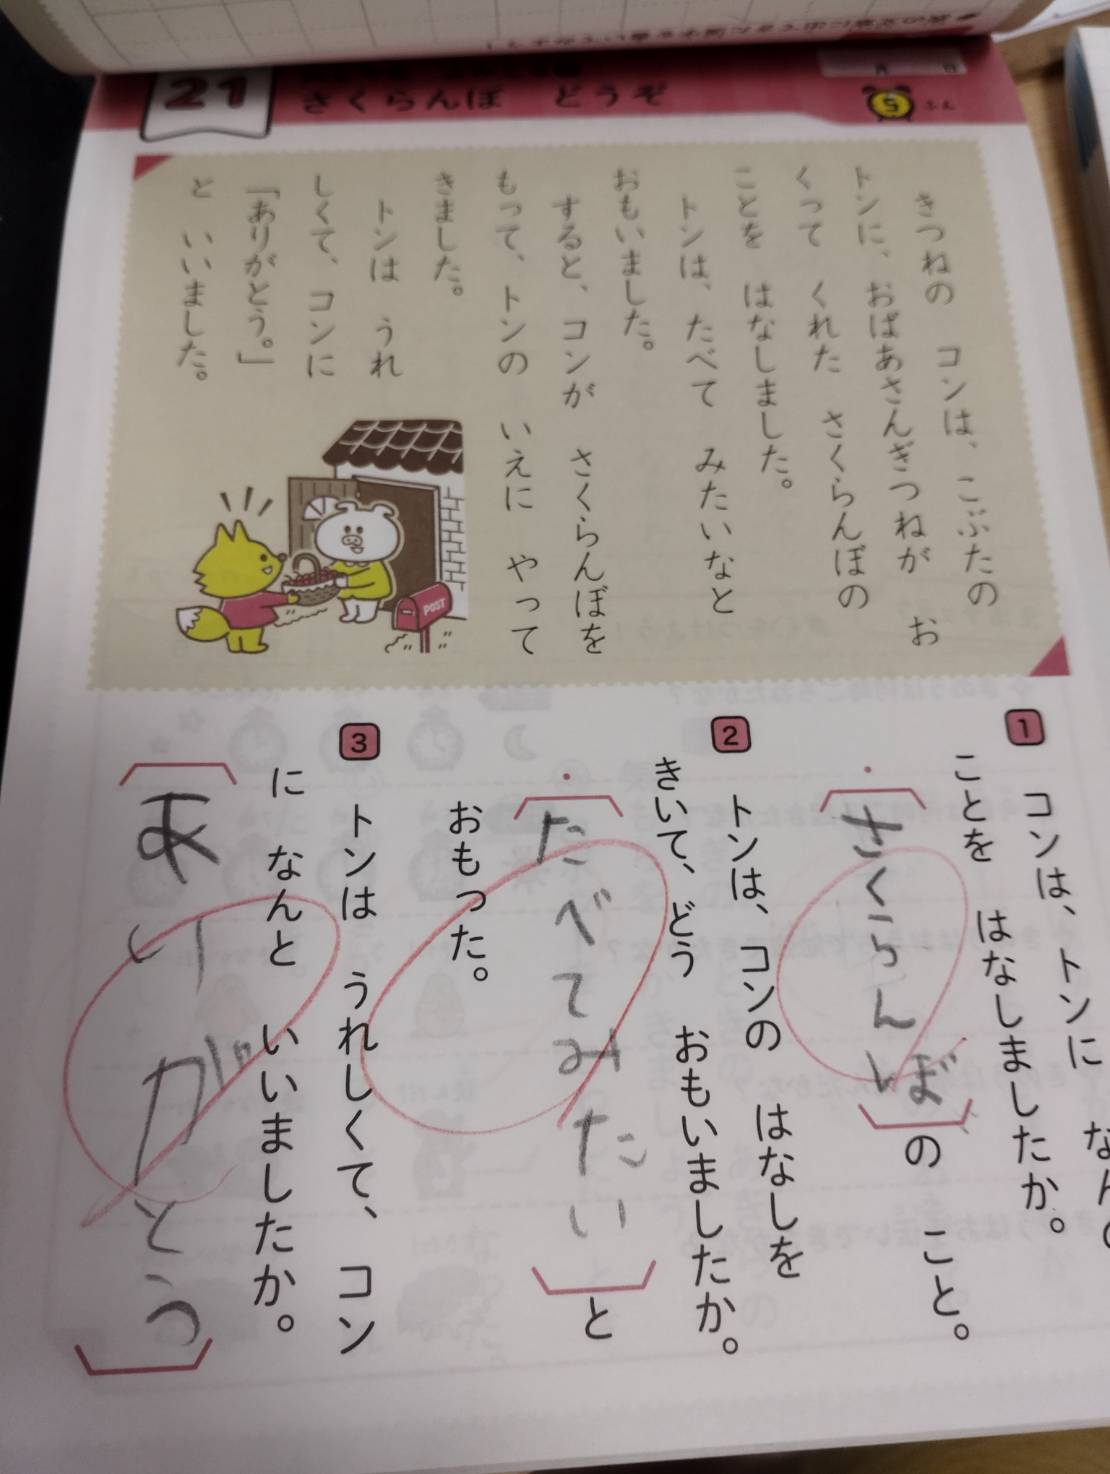 21
さくらんぼ どうぞ
5
ふん
月 日
きつねの コンは、こぶたの
トンに、おばあさんぎつねが お
くって くれた さくらんぼの
ことを はなしました。
トンは、たべて みたいなと
おもいました。
すると、コンが さくらんぼを
もって、トンの いえに やって
きました。
トンは うれ
しくて、コンに
「ありがとう。」
と いいました。
POST
1
コンは、トンに なんの
ことを はなしましたか。
さくらんぼ の こと。
2
トンは、コンの はなしを
きいて、どう おもいましたか。
たべてみたい と
おもった。
3
トンは うれしくて、コン
に なんと いいましたか。
ありがとう